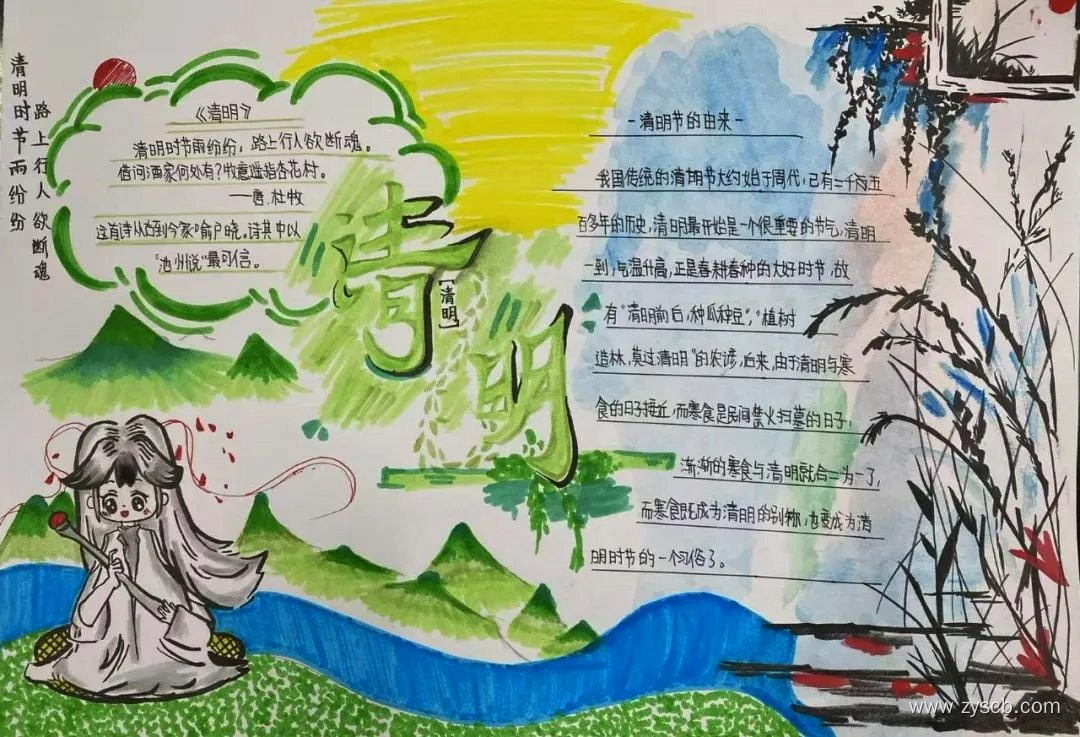 清明时节雨纷纷
路上行人欲断魂
《清明》
清明时节雨纷纷，路上行人欲断魂。
借问酒家何处有？牧童遥指杏花村。
——唐.杜牧
这首诗从古到今家喻户晓，诗其中以
“池州说”最可信。
清明
【清明】
-清明节的由来-
我国传统的清明节大约始于周代，已有二千五
百多年的历史，清明最开始是一个很重要的节气，清明
一到，气温升高，正是春耕春种的大好时节，故
有“清明前后，种瓜种豆”，“植树
造林，莫过清明”的农谚，后来，由于清明与寒
食的日子接近，而寒食是民间禁火扫墓的日子，
渐渐的寒食与清明就合二为一了，
而寒食既成为清明的别称，也变成为清
明时节的一个习俗了。
www.zyscb.com